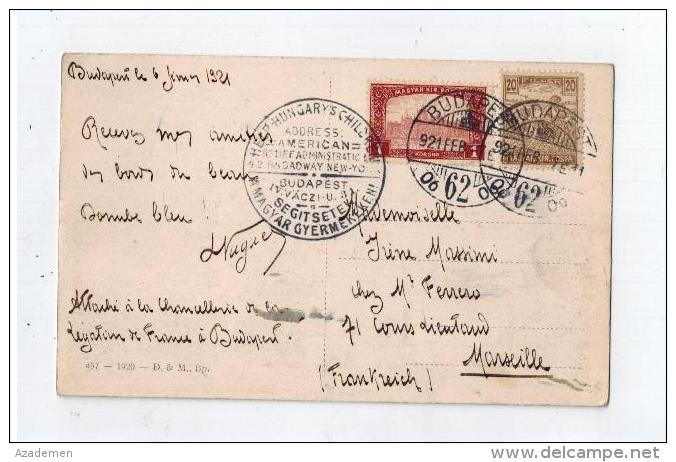 Budapest le 6 1921
Recevez mes amitiés
des bords du beau
Danube bleu !
Attaché à la Chancellerie de la
Légation de France à Budapest.
457 — 1920 — D. & M., Bp.
HELP HUNGARY'S CHILDREN
ADDRESS:
AMERICAN
RELIEF ADMINISTRATION
BROADWAY NEW-YO
BUDAPEST
IV. VÁCZI-U.
SEGITSETEK
A MAGYAR GYERMEKEKEN!
MAGYAR KIR. POSTA
1 KORONA 1
20 20
MAGYAR KIR. POSTA
BUDAPEST
921 FEB
62
BUDAPEST
921
62
Mademoiselle
Irène Massimi
chez Mr Ferrero
71 Cours Lieutaud
Marseille
(Frankreich)
Azademen
delcampe.net